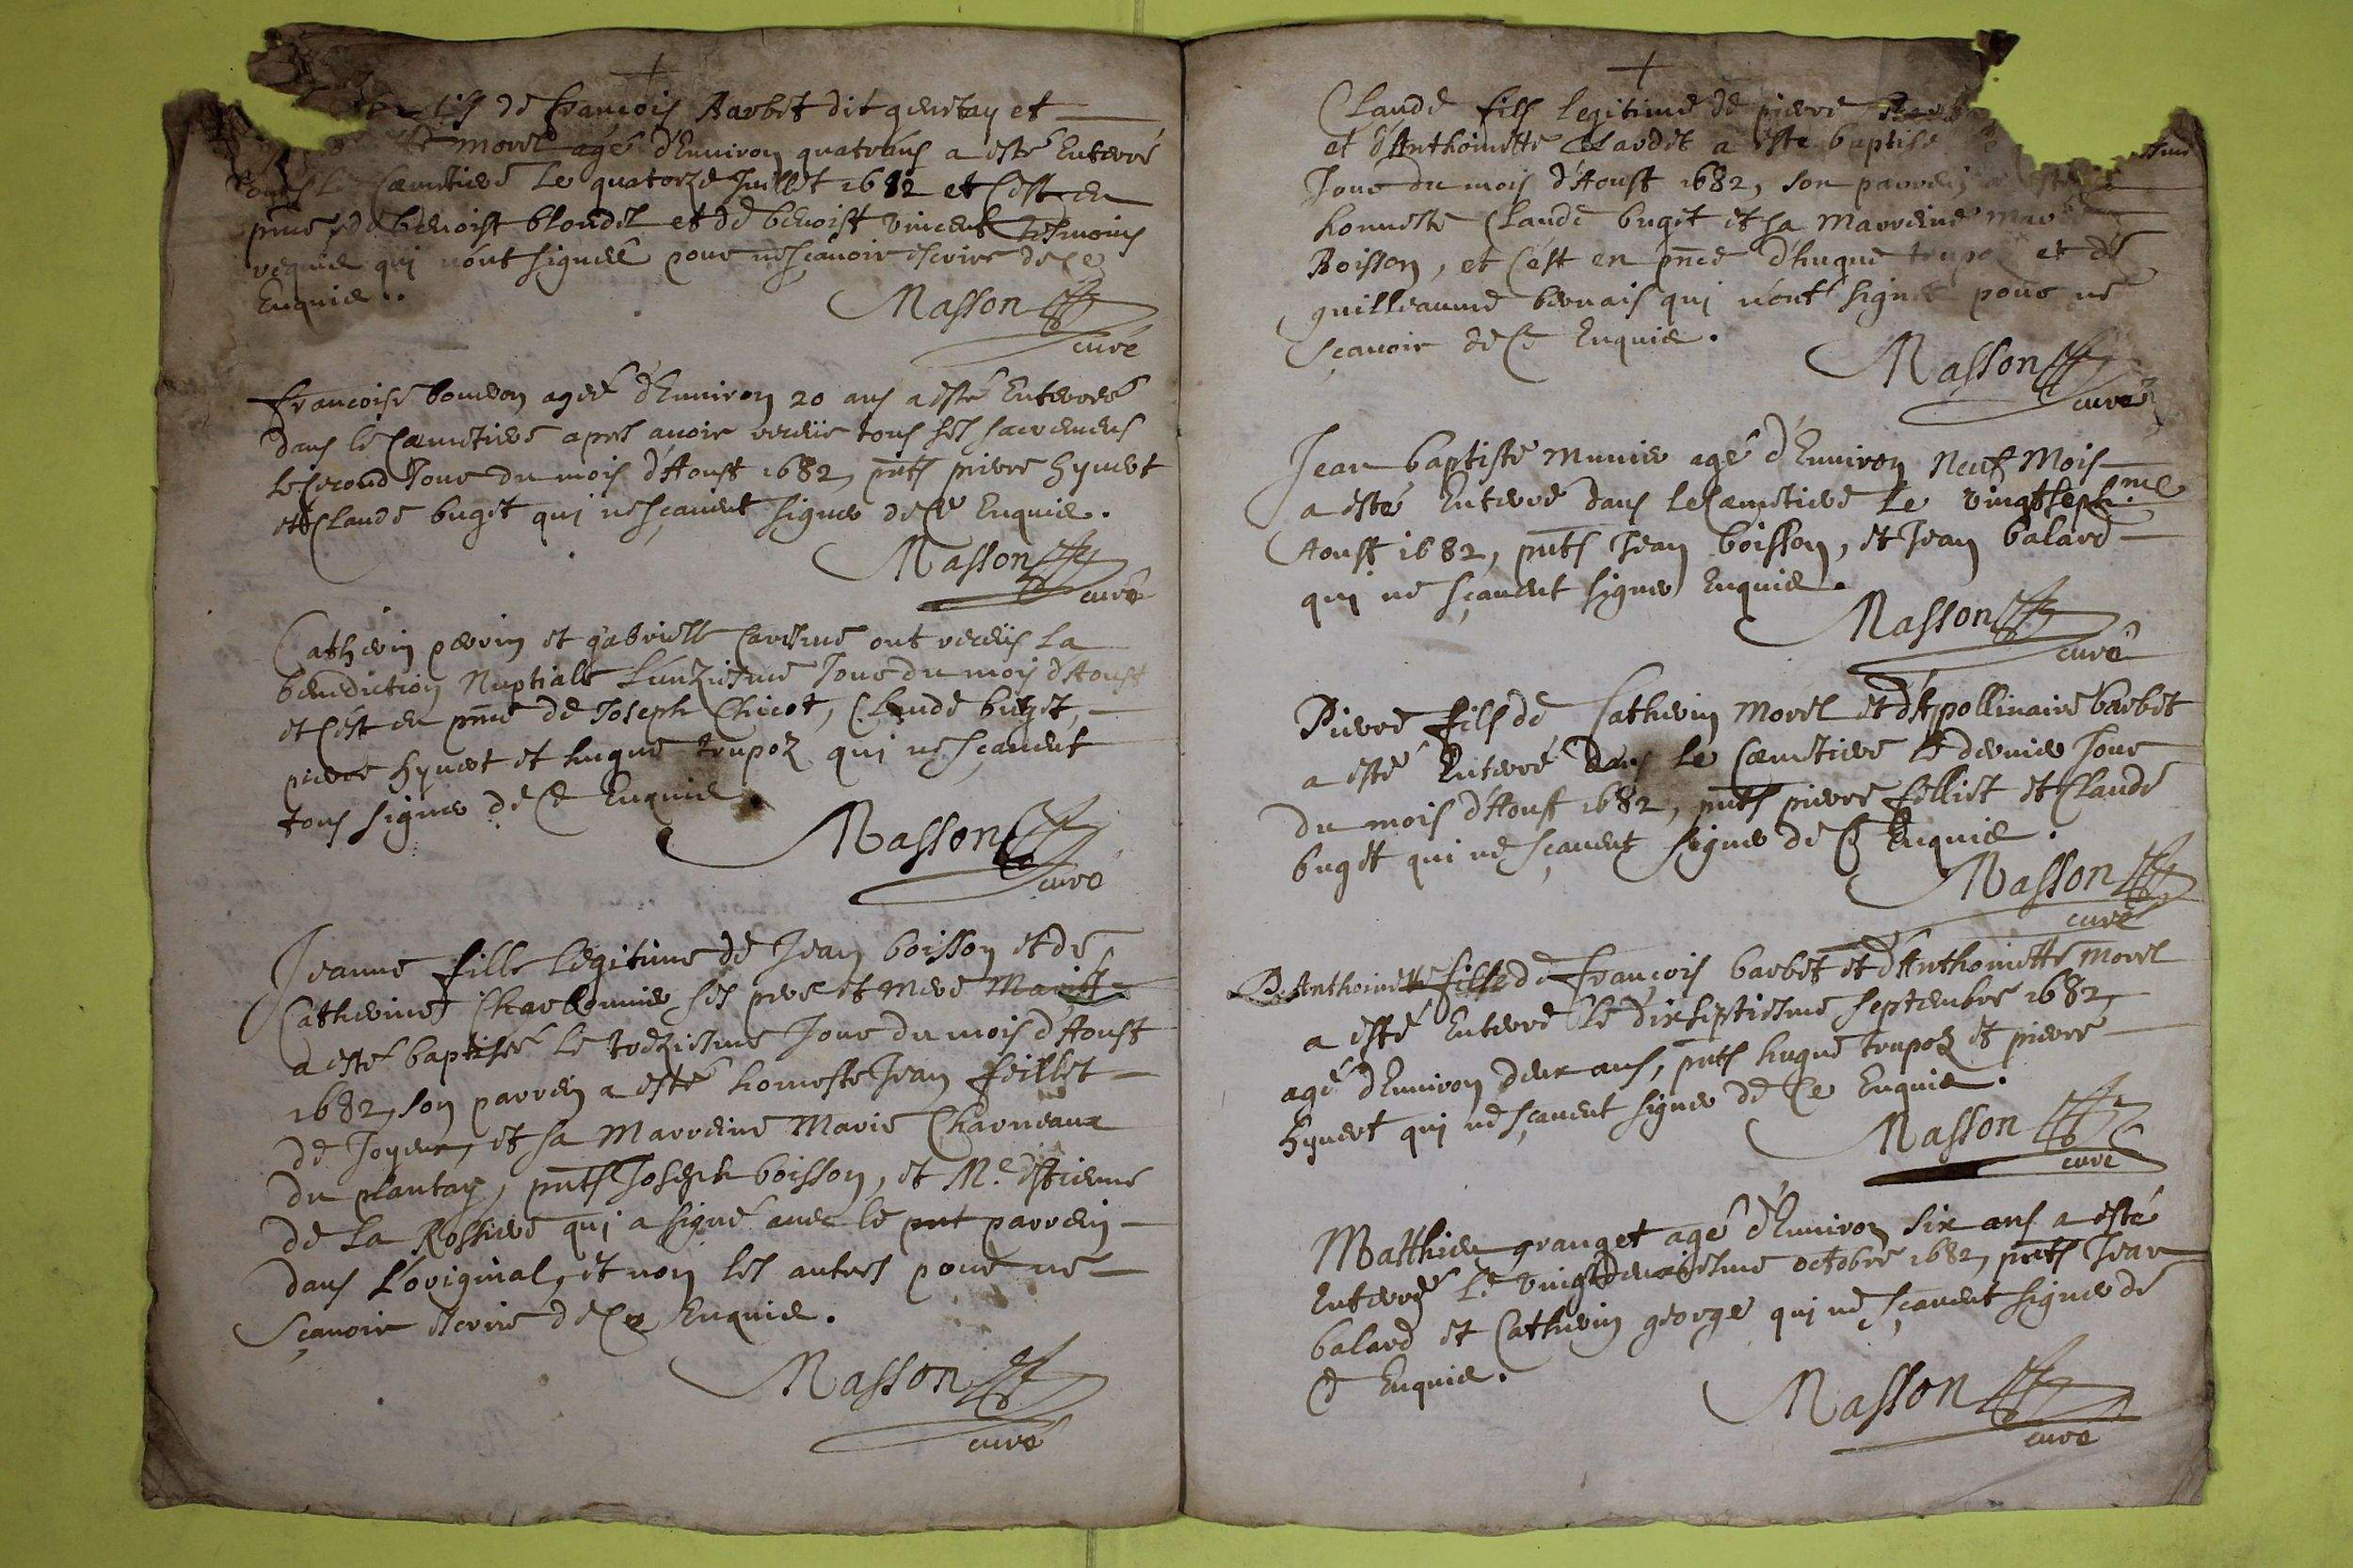 fils de francois Barbet dit genetay et
morel agé d'Enuiron quatr'ans a esté Enterré
dans le Cæmetiere le quatorze Juillet 1682 et c'est en
pnce de benoist blondel et de benoist vincent tesmoins
requis qui n'ont signéé pour ne sçauoir escrire de ce
Enquis..
Masson
curé
francoise bourdon agéé d'Enuiron 20 ans a esté Enterréé
dans le Cæmetiere apres auoir receüe tous ses sacremens
le second Jour du mois d'Aoust 1682, pnts pierre hyuert
et Claude buget qui ne sçauent signer de ce Enquis.
Masson
curé
Catherin perrin et gabrielle caresme ont receüs la
benediction Nuptiale l'unziesme Jour du mois d'Aoust
et c'est en pnce de Joseph Chicot, Claude buget,
pierre hyuert et hugue trupoz qui ne sçauent
tous signer de ce Enquis.
Masson
curé
Jeanne fille legitime de Jean boisson et de
Catherine Charbonnier ses pere et mere
a esté baptiséé le treziesme Jour du mois d'Aoust
1682, son parrein a esté honneste Jean feillet
de Joyeux, et sa Marreine Marie Charneaux
du plantay, pnts Joseph boisson, et Me. estienne
de La Rossiere qui a signé auec le pnt parrein
dans L'original, et non les autres pour ne
Sçauoir escrire de ce Enquis.
Masson
curé
Claude fils legitime de pierre
et d'Anthoinette Clardet a este baptisé
Jour du mois d'Aoust 1682, son parrein a esté
honneste Claude buget et sa Marreine
Boisson, et c'est en pnce d'hugue trupoz et de
guilleaume bernais qui n'ont signé pour ne
sçauoir de ce Enquis.
Masson
curé
Jean baptiste Munier agé d'Enuiron Neuf Mois
a esté Enterré dans le Cæmetiere le vingtseptme
Aoust 1682, pnts Jean boisson, et Jean balard
qui ne sçauent signer Enquis.
Masson
curé
Pierre fils de Catherin Morel et d'Appollinaire barbet
a esté Enterré dans le Cæmetiere le dernier Jour
du mois d'Aoust 1682, pnts pierre felliet et Claude
buget qui ne sçauent signer de ce Enquis.
Masson
curé
Anthoinette fille de François barbet et d'Anthoinette Morel
a esté Enterré le dixseptiesme septembre 1682,
agé d'Enuiron deux ans, pnts hugue trupoz et pierre
hyuert qui ne sçauent signer de ce Enquis.
Masson
curé
Matthieu granget agé d'Enuiron six ans a esté
Enterré Le vingtdeuxiesme octobre 1682, pnts Jean
balard et Catherin george qui ne sçauent signer de
ce Enquis.
Masson
curé